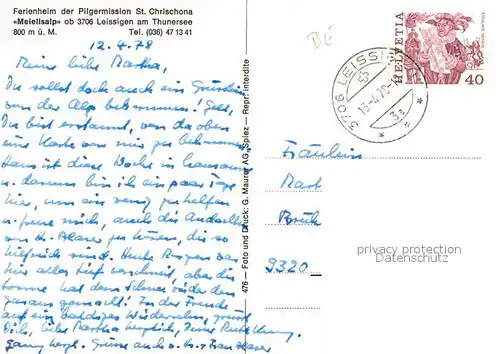 Ferienheim der Pilgermission St. Chrischona
«Meielisalp» ob 3706 Leissigen am Thunersee
800 m ü. M. Tel. (036) 47 13 41
12.4.78
Meine liebe Martha,
Du sollst doch auch ein Grüsslein
von der Alp bekommen! Gell,
Du bist erstaunt, von da oben
eine Karte von mir zu bekommen.
Hans ist diese Woche in Lausanne
u. darum bin ich ein paar Tage
hier, um ein wenig zu helfen
u. freue mich, auch die Andachten
von Hr. Haser zu hören, die so
hilfreich sind. Heute Morgen war
hier alles tief verschneit, aber die
Sonne hat dem Schnee wieder den
Garaus gemacht! In der Freude
auf ein baldiges Wiedersehn, grüsst
Dich, liebe Martha herzlich, Deine
ganz herzl. Grüsse auch v. Hr. + Frau Haser
476 – Foto und Druck: G. Maurer AG, Spiez – Repr. interdite
BE
3706 LEISSI
13.-4.78
3a
HELVETIA
40
Fräulein
Mart
Buch
9320
privacy protection
Datenschutz